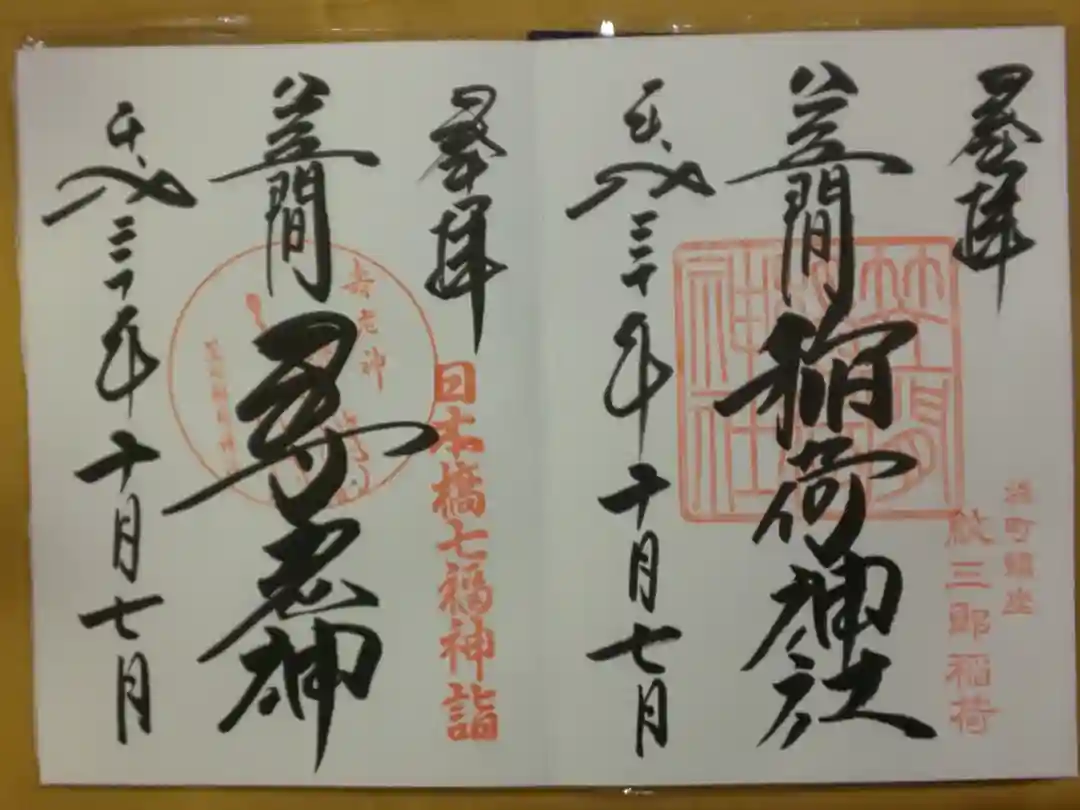 奉拝
浜町鎮座
紋三郎稲荷
笠間稲荷神社
笠間稲荷神社
平成三十年十月七月
奉拝
日本橋七福神詣
笠間寿老神
寿老神
平成三十年十月七月